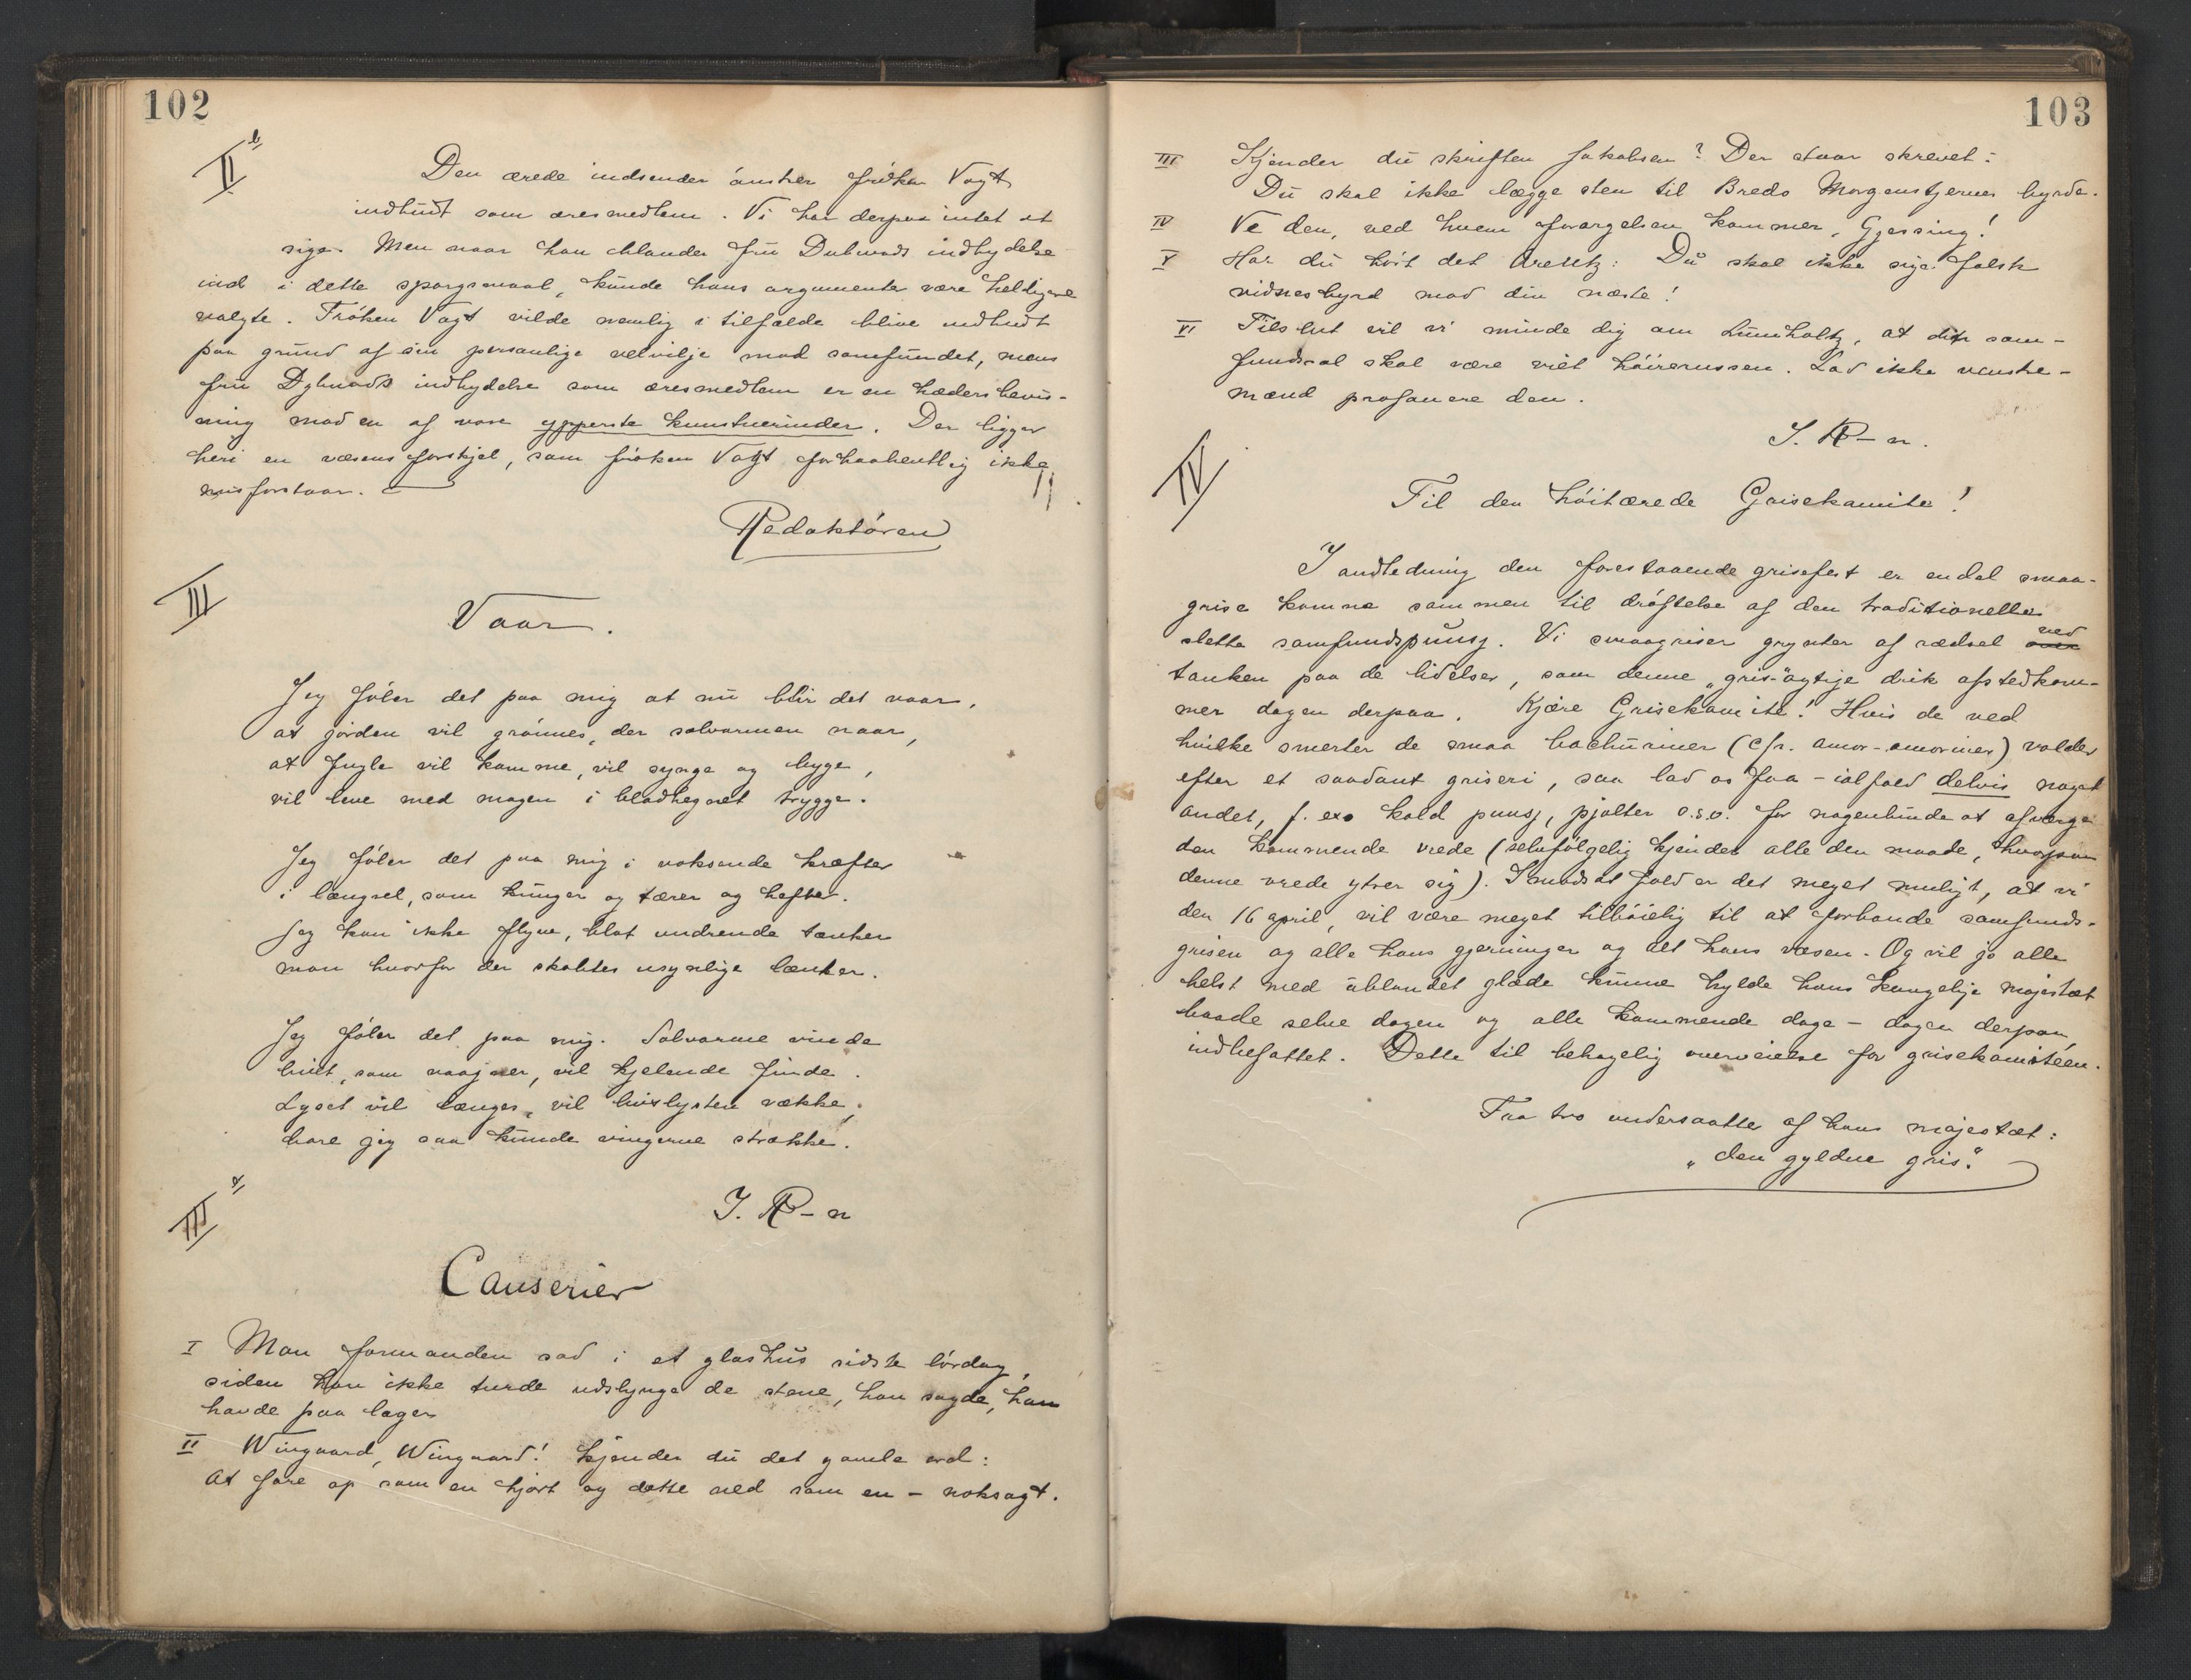 102
II b
Den ærede indsender ønsker frøken Vogt
indbudt som æresmedlem. Vi har derpaa intet at
sige. Men naar han blander fru Dybwads indbydelse
ind i dette spørgsmaal, kunde hans argumenter være heldigere
valgte. Frøken Vogt vilde nemlig i tilfælde blive indbudt
paa grund af sin personlige velvilje mod samfundet, mens
fru Dybwads indbydelse som æresmedlem er en hædersbevis-
ning mod en af vore ypperste kunstnerinder. Der ligger
heri en væsensforskjel, som frøken Vogt forhaabentlig ikke
misforstaar.
Redaktøren
III
Vaar.
Jeg føler det paa mig at nu blir det vaar,
at jorden vil grønnes, der solvarmen naar,
at fugle vil komme, vil synge og bygge,
vil leve med magen i bladhegnet trygge.
Jeg føler det paa mig i voksende kræfter
i længsel, som tynger og tærer og hefter.
Jeg kan ikke flyve, blot undrende tænker
mon hvorfor der skabtes usynlige lænker.
Jeg føler det paa mig. Solvarme vinde
hvilt, som vaagner, vil kjelende finde.
Lyset vil længes, vil livslysten vække,
bare jeg saa kunde vingerne strække.
J. R-n
III a
Causerier
I Mon formanden sad i et glashus sidste lørdag,
siden han ikke turde udslynge de stene, han sagde, han
havde paa lager
II Wingaard, Wingaard! Kjender du det gamle ord:
At fare op som en hjort og dette ned som en – noksagt.
103
III Kjender du skriften Jakobsen? Der staar skrevet:
Du skal ikke lægge sten til Bredo Morgenstjernes byrde.
IV Ve den, ved hvem forargelsen kommer, Gjessing!
V Har du hørt det Arentz: Du skal ikke sige falsk
vidnesbyrd mod din næste!
VI Tilslut vil vi minde dig om Lumholtz, at dit sam-
fundssal skal være viet høirerussen. Lad ikke venstre-
mænd profanere den.
J. R-n.
IV
Til den høitærede Grisekomite!
I andledning den forestaaende grisefest er endel smaa-
grise komne sammen til drøftelse af den traditionelle
slette samfundspunsj. Vi smaagriser grynter af rædsel over ved
tanken paa de lidelser, som denne „gris"agtige drik afstedkom-
mer dagen derpaa. Kjære Grisekomite! Hvis de ved
hvilke smerter de smaa bachuriner (cfr. amor-amoriner) volder
efter et saadant griseri, saa lad os faa – ialfald delvis noget
andet, f. eks kold punsj, pjolter o.s.v. for nogenlunde at afværge
den kommende vrede (selvfølgelig kjender alle den maade, hvorpaa
denne vrede ytrer sig). I modsat fald er det meget muligt, at vi
den 16 april, vil være meget tilbøielig til at forbande samfunds-
grisen og alle hans gjerninger og alt hans væsen. Og vil jo alle
helst med ublandet glæde kunne hylde hans kongelige majestæt
baade selve dagen og alle kommende dage – dagen derpaa
indbefattet. Dette til behagelig overveielse for grisekomitéen.
Faa tro undersaatter af hans majestæt:
„den gyldne gris."